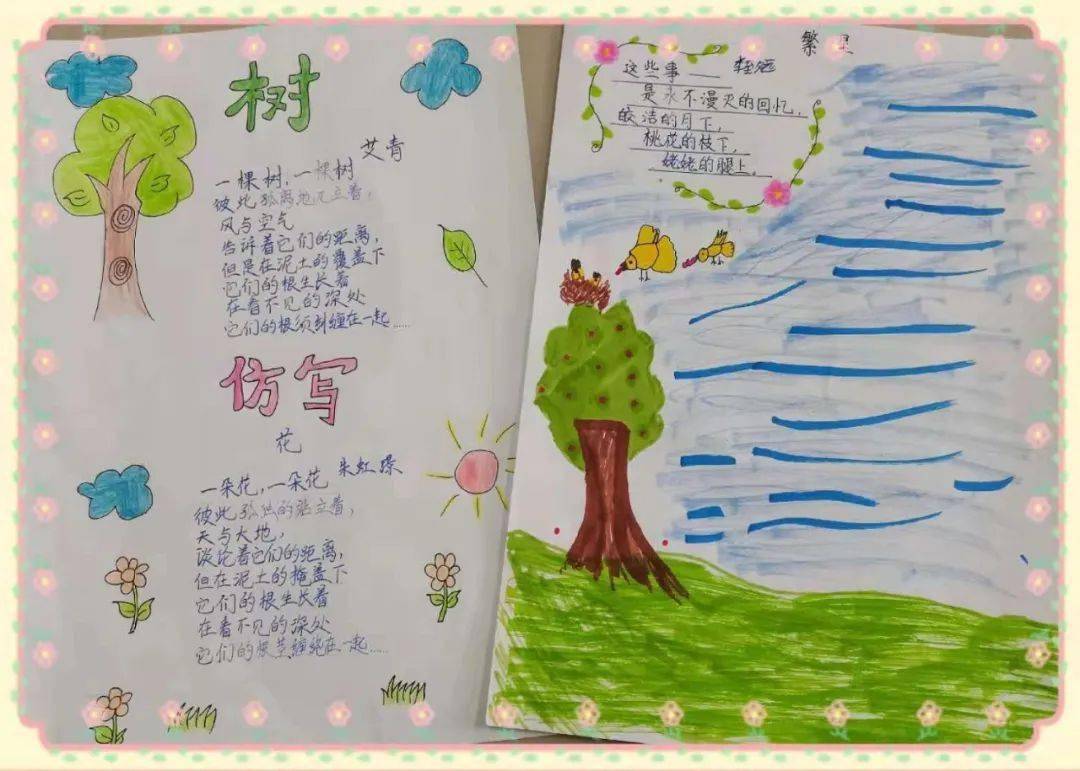 树
艾青
一棵树，一棵树
彼此孤离地兀立着，
风与空气
告诉着它们的距离，
但是在泥土的覆盖下
它们的根生长着
在看不见的深处
它们的根须纠缠在一起……
仿写
花
朱虹
一朵花，一朵花
彼此孤独的独立着，
天与大地，
谈论着它们的距离，
但在泥土的掩盖下
它们的根生长着
在看不见的深处
它们的根茎缠绕在一起……
繁星
这些事——
是永不漫灭的回忆，
皎洁的月下，
桃花的枝下，
姥姥的腿上。